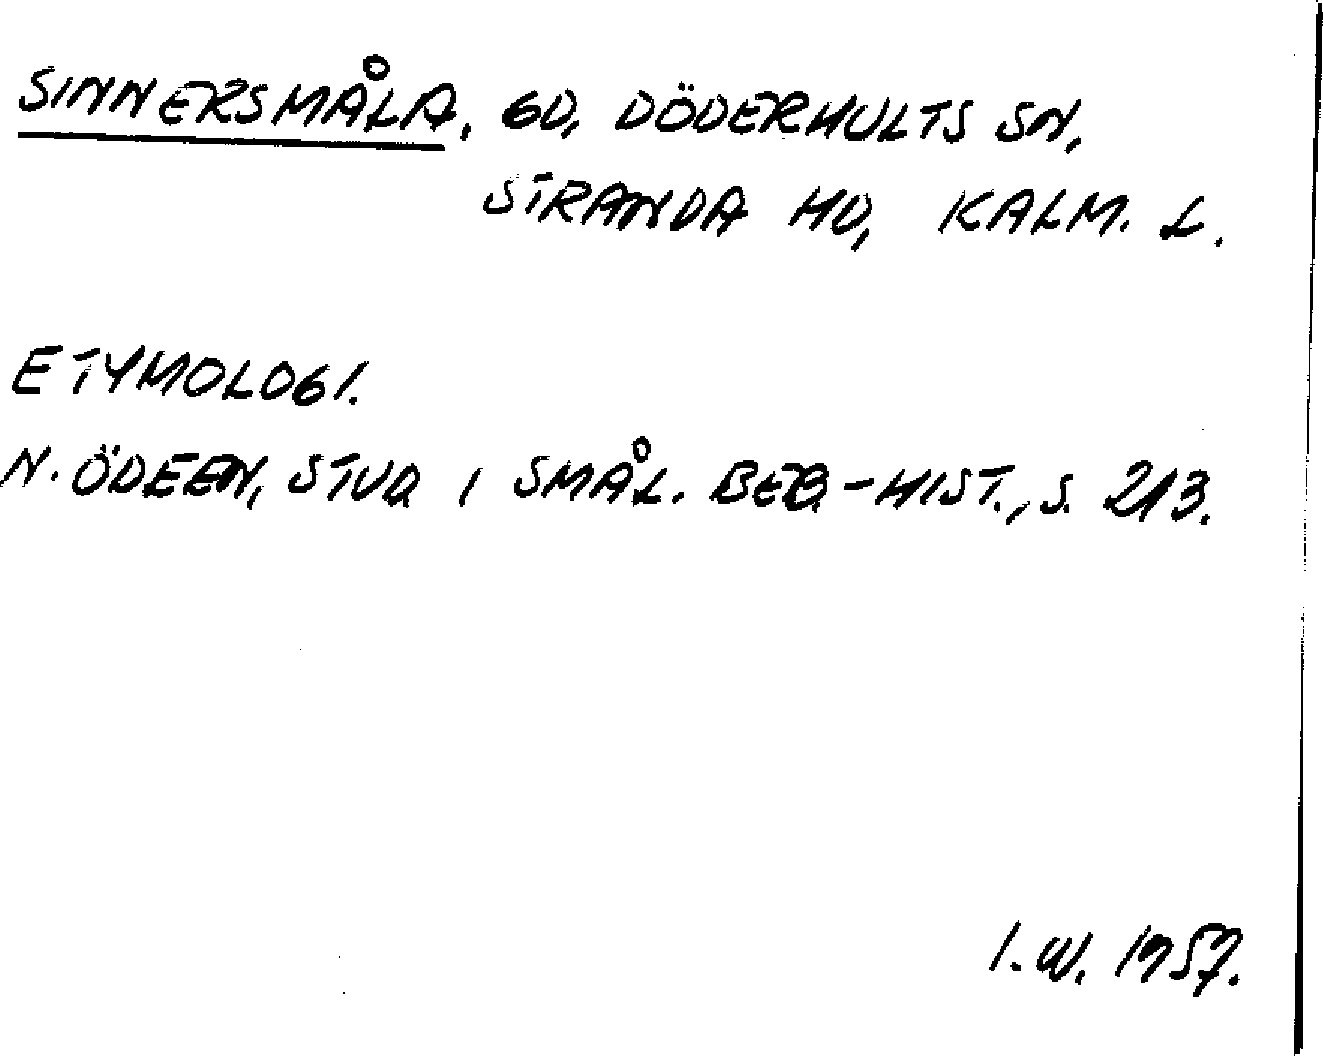 SINNERSMÅLA, GD, DÖDERHULTS SN,
STRANDA HD, KALM. L.
ETYMOLOGI.
N. ÖDEEN, STUD. I SMÅL. BEB.-HIST., S. 213.
I.W. 1957.